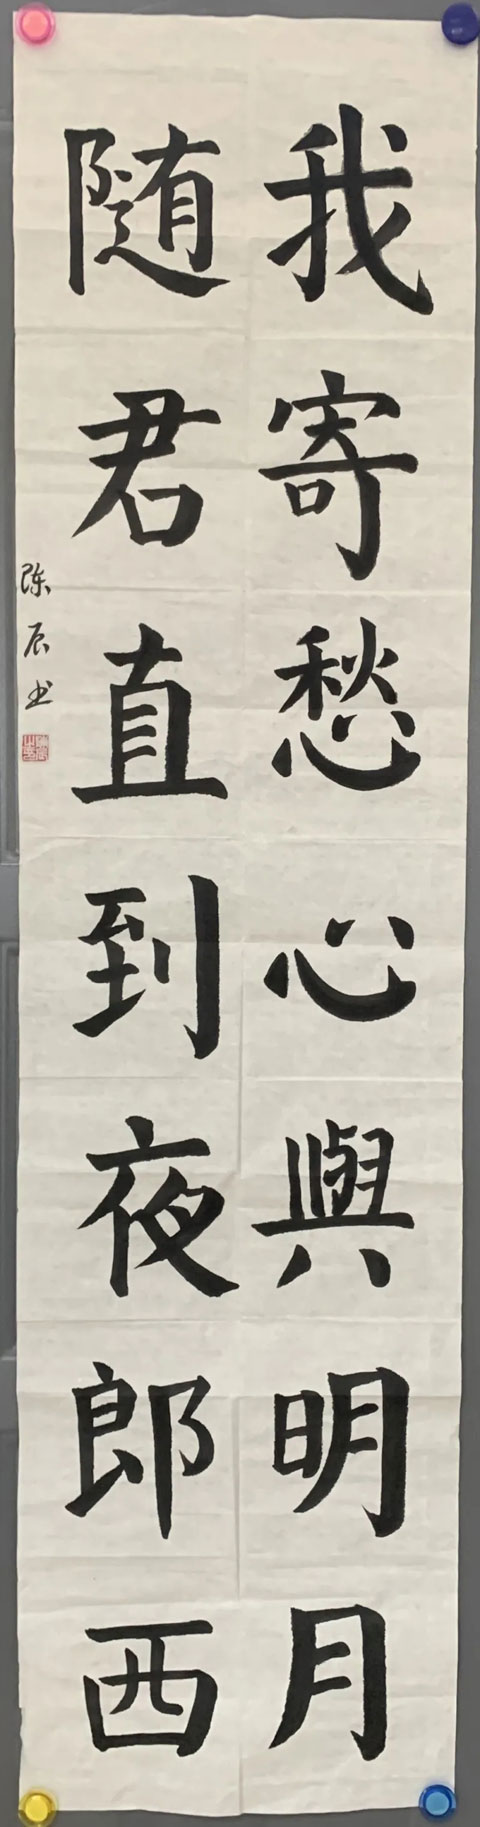 我寄愁心與明月
随君直到夜郎西
陈辰书